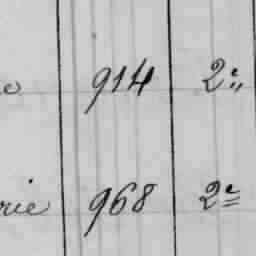 914 2e
968 2e